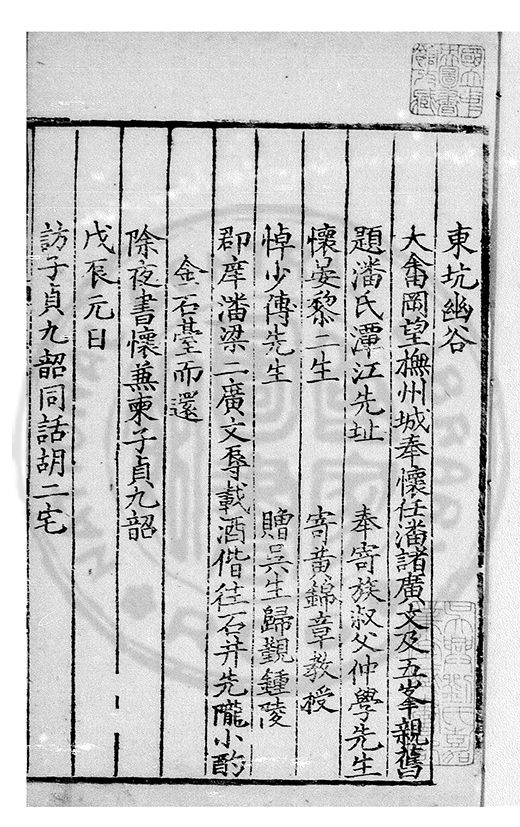 東坑幽谷
大畲岡望撫州城奉懷任潘諸廣文及五峯親舊
題潘氏潭江先址 奉寄族叔父仲學先生
懷晏黎二生 寄黃錦章教授
悼少傅先生 贈吳生歸觀鍾陵
郡庠潘梁二廣文辱載酒偕往石井先隴小酌
金石臺而還
除夜書懷兼柬子貞九韶
戊辰元日
訪子貞九韶同話胡二宅